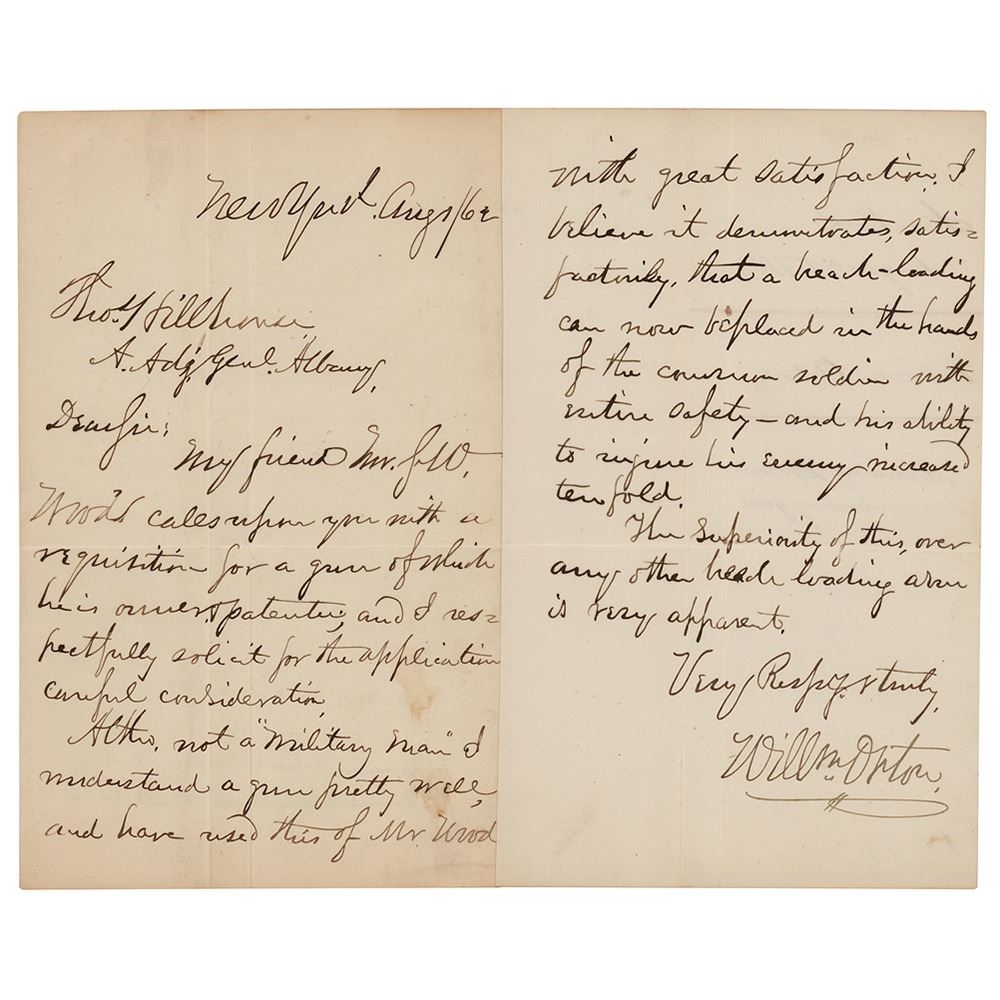 New York. Aug 1/62
Thos. Hillhouse
A. Adj. Genl. Albany,
Dear Sir;
My friend Mr. S. W.
Wood calls upon you with a
requisition for a gun of which
he is owner & patentee, and I res=
pectfully solicit for the application
careful consideration,
Altho, not a "military man" I
understand a gun pretty well,
and have used this of Mr. Wood
with great satisfaction. I
believe it demonstrates, satis=
factorily, that a breach-loading
can now be placed in the hands
of the common soldier with
entire safety — and his ability
to injure his enemy increased
ten fold.
The superiority of this, over
any other breach loading arm
is very apparent.
Very Respy. & truly,
Willm Orton.